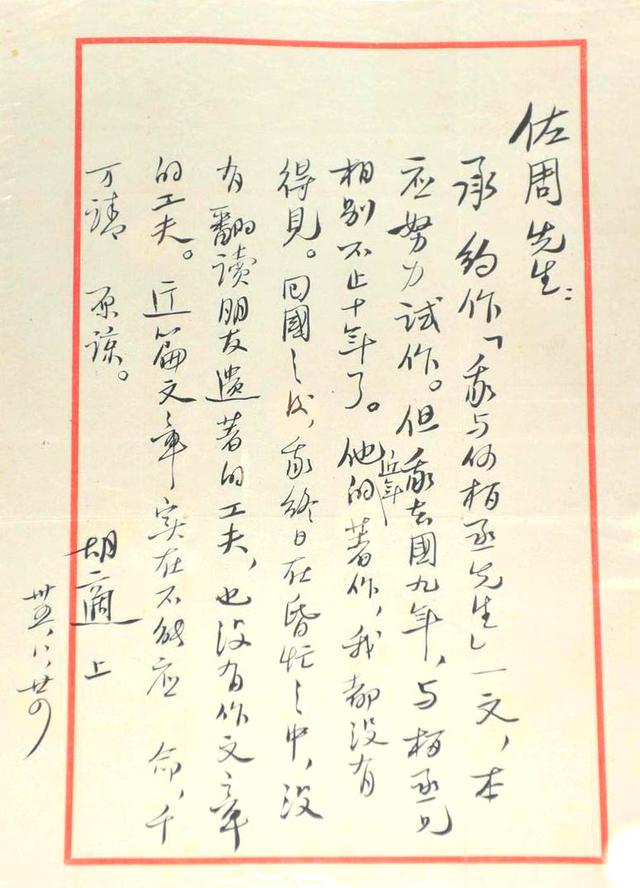 佐周先生：
承 約作「我与何柏丞先生」一文，本
应努力試作。但我去國九年，与柏丞兄
相别不止十年了。他的近年著作，我都没有
得見。回國之後，我終日在昏忙之中，没
有翻讀朋友遺著的工夫，也没有作文章
的工夫。这篇文章実在不能应 命，千
万請 原諒。
胡適上
卅五，八，廿四